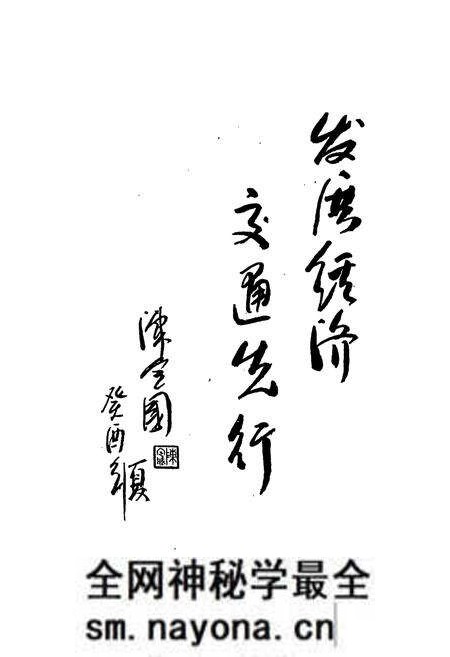 发展经济
交通先行
陳國
癸酉夏
全网神秘学最全
sm.nayona.cn